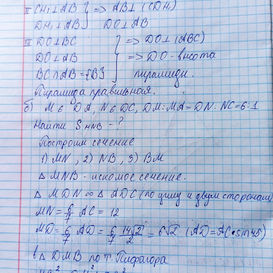 II CH₁⊥AB } => AB⊥(CDH)
DH₁⊥AB } DO⊥AB
III DO⊥BC } => DO⊥(ABC)
DO⊥AB } => DO - высота
BC∩AB={B} } пирамиды.
Пирамида правильная.
б) M ∈ DA, N ∈ DC, DM:MA=DN:NC=6:1
Найти S - ?
Построим сечение
1) MN, 2) NB, 3) BM
△MNB - искомое сечение.
△MDN ∾ △ADC (по углу и двум сторонам)
MN = 6/7 AC = 12
MD = 6/7 AD = 6/7 · 14√2/2 = 6√2 (AD=AC·sin45)
в △DMB по т. Пифагора